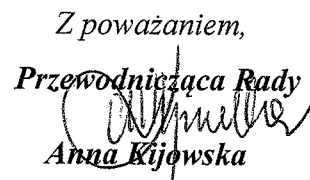 Z poważaniem,
Przewodnicząca Rady
Anna Kijowska